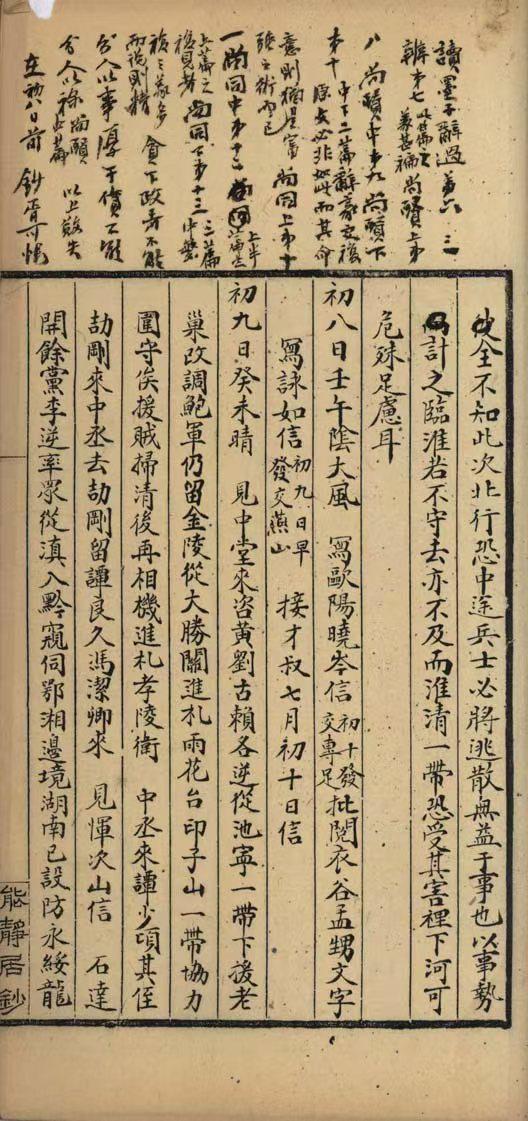 讀墨子辭過第六 三
辨第七 以上篇之義甚褊 尚賢上第
八 尚賢中第九 尚賢下
第十 中下二篇辭義之複
意則猶是 尚同上第十
一 尚同中第十二
上篇之 尚同下第十三 三篇
貪下政者不能
分人以事厚于貨不能
分人以祿 尚賢 以上
在初八日前 鈔胥可恨
使全不知此次北行恐中途兵士必將逃散無益于事也以事勢
計之臨淮若不守去亦不及而淮清一帶恐受其害裡下河可
危殊足慮耳
初八日壬午陰大風 寫歐陽曉岑信 初十發交專足 批閱衣谷孟甥文字
寫詠如信 初九日早發交燕山 接才叔七月初十日信
初九日癸未晴 見中堂來咨黃劉古賴各逆從池寧一帶下援老
巢改調鮑軍仍留金陵從大勝關進札雨花台印子山一帶協力
圍守俟援賊掃清後再相機進札孝陵衛 中丞來譚少頃其侄
劼剛來中丞去劼剛留譚良久馮潔卿來 見惲次山信 石達
開餘黨李逆率眾從滇入黔窺伺鄂湘邊境湖南已設防永綏龍
能靜居鈔